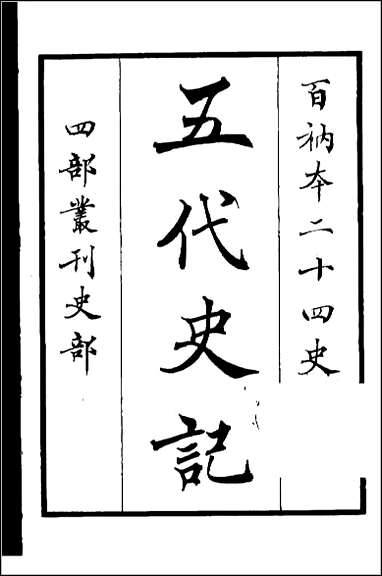 百衲本二十四史
五代史記
四部叢刊史部